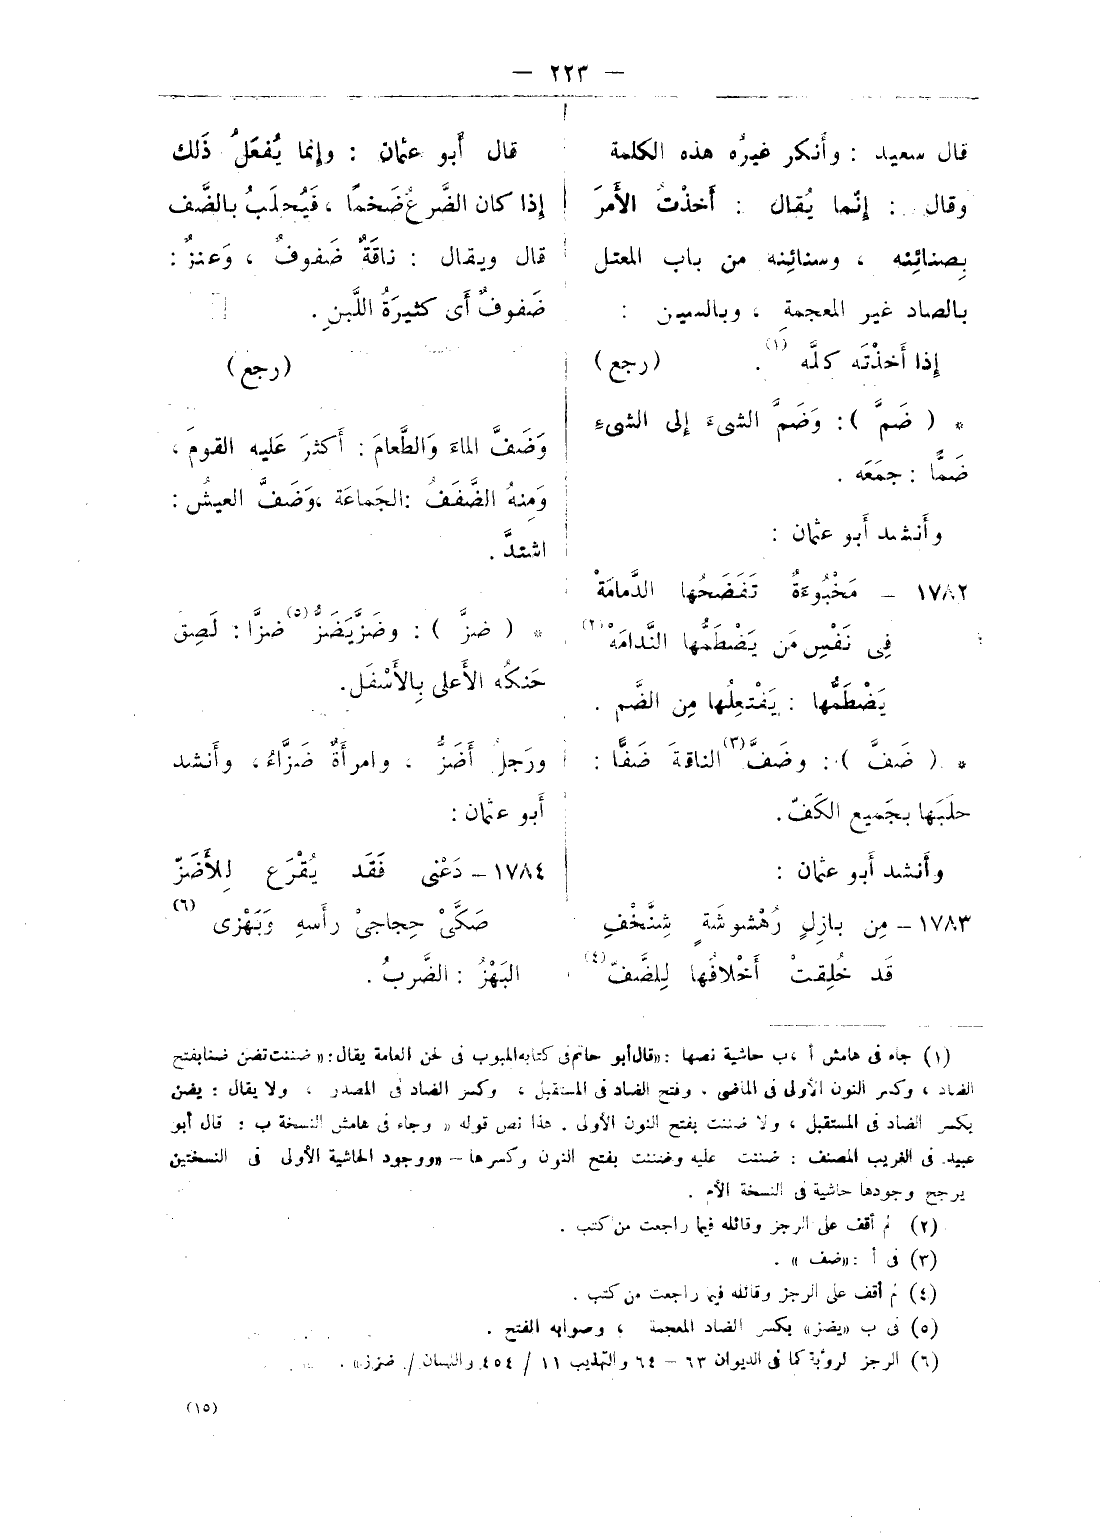 — ٢٢٣ —
قال سعيد : وأَنكر غيرُه هذه الكلمة
وقال : إنّما يُقال : أَخذْتُ الأَمرَ
بِصنائِنه ، وسنائِنه من باب المعتل
بالصاد غير المعجمة ، وبالسين :
إذا أَخذْتَه كلَّه (١) . (رجع)
* ( ضَمَّ ) : وَضَمَّ الشىءَ إلى الشىءِ
ضَمًّا : جمَعَه .
وأَنشد أَبو عثمان :
١٧٨٢ – مَخْبُوءَةٌ تَفَضَحُها الدَّمامَةْ
فِى نَفْسِ مَن يَضْطَمُّها النَّدامَهْ (٢)
يَضْطَمُّها : يَفْتعِلُها مِن الضَّم .
* ( ضَفَّ ) : وضَفَّ (٣) الناقةَ ضَفًّا :
حلَبَها بجَميع الكَفّ .
وأَنشد أَبو عثمان :
١٧٨٣ – مِن بازِلٍ رُهْشوشَةٍ شِنَّخْفِ
قَد خُلِقتْ أَخْلافُها لِلضَّفّ (٤)
قال أَبو عثمان : وإنما يُفعَلُ ذَلك
إذا كان الضَّرعُ ضَخمًا ، فَيُحلَبُ بالضَّف
قال ويقال : ناقَةٌ ضَفوفٌ ، وَعنزٌ :
ضَفوفٌ أَى كثيرَةُ اللَّبنِ .
(رجع)
وَضَفَّ الماءَ وَالطَّعامَ : أَكثرَ عَليه القومَ ،
وَمِنهُ الضَّفَفُ : الجَماعَة ، وَضَفَّ العيشُ :
اشتدَّ .
* ( ضزَّ ) : وضَزَّ يَضَزُّ (٥) ضزًّا : لَصِق
حَنكُه الأَعلى بِالأَسْفَل .
ورَجلٌ أَضَزُّ ، وامرأَةٌ ضَزَّاءُ ، وأَنشد
أَبو عثمان :
١٧٨٤ – دَعْنى فَقَد يُقْرَع لِلأَضَزّ
صَكَّىْ حِجاجىْ رأسهِ وَبَهْزى (٦)
البَهْزُ : الضَّربُ .
(١) جاء فى هامش أ ، ب حاشية نصها : «قال أبو حاتم فى كتابه المبوب فى لحن العامة يقال : « ضننت تضن ضنا بفتح
الضاد ، وكسر النون الأولى فى الماضى . وفتح الضاد فى المستقبل ، وكسر الضاد فى المصدر ، ولا يقال : يضن
بكسر الضاد فى المستقبل ، ولا ضننت بفتح النون الأولى . هذا نص قوله « وجاء فى هامش النسخة ب : قال أبو
عبيد فى الغريب المصنف : ضننت عليه وضننت بفتح النون وكسرها – «ووجود الحاشية الأولى فى النسختين
يرجح وجودها حاشية فى النسخة الأم .
(٢) لم أقف على الرجز وقائله فيما راجعت من كتب .
(٣) فى أ : «ضف » .
(٤) لم أقف على الرجز وقائله فيما راجعت من كتب .
(٥) فى ب «يضز» بكسر الضاد المعجمة ، وصوابه الفتح .
(٦) الرجز لرؤبة كما فى الديوان ٦٣ – ٦٤ والتهذيب ١١ / ٤٥٤ واللسان / ضزز» .
(١٥)